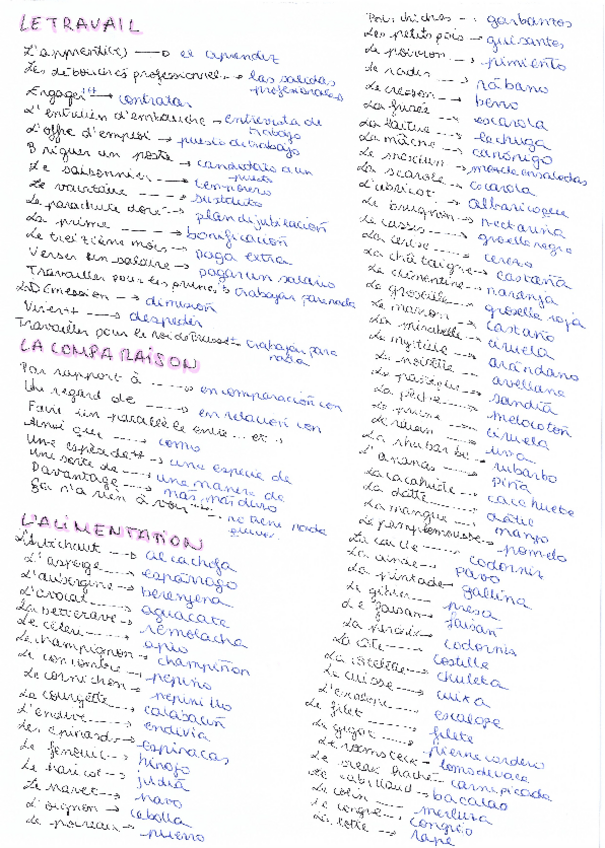 LE TRAVAIL
L'apprenti(e) → el aprendiz
Les débouchés professionnels → las salidas
profesionales
Engager → contratar
L'entretien d'embauche → entrevista de
trabajo
L'offre d'emploi → puesto de trabajo
Briguer un poste → candidato a un
puesto
Le saisonnier → temporero
Le vacataire → sustituto
Le parachute doré → plan de jubilación
La prime → bonificación
Le treizième mois → paga extra
Verser un salaire → pagar un salario
Travailler pour les prunes → trabajar para nada
La démission → dimisión
Virer → despedir
Travailler pour le roi de Prusse → trabajar para
nada
LA COMPARAISON
Par rapport à → en comparación con
Au regard de → en relación con
Faire un parallèle entre ... et
Ainsi que → como
Une espèce de → una especie de
Une sorte de → una manera de
Davantage → más
Ça n'a rien à voir → no tiene nada
que ver
L'ALIMENTATION
L'artichaut → alcachofa
L'asperge → espárrago
L'aubergine → berenjena
L'avocat → aguacate
La betterave → remolacha
Le céleri → apio
Le champignon → champiñon
Le concombre → pepino
Le cornichon → pepinillo
La courgette → calabacín
L'endive → endivia
Les épinards → espinacas
Le fenouil → hinojo
Le haricot → judía
Le navet → navo
L'oignon → cebolla
Le poireau → puerro
Pois chiches → garbanzos
Les petits pois → guisantes
Le poivron → pimiento
Le radis → rábano
Le cresson → berro
La frisée → escarola
La laitue → lechuga
La mâche → canónigo
Le mesclun → mezcla ensaladas
La scarole → escarola
L'abricot → albaricoque
Le brugnon → nectarina
Le cassis → grosella negra
La cerise → cereza
La châtaigne → castaña
La clémentine → naranja
La groseille → grosella roja
Le marron → castaño
La mirabelle → ciruela
La myrtille → arándano
La noisette → avellana
La pastèque → sandía
La pêche → melocotón
La prune → ciruela
Le raisin → uva
La rhubarbe → rubarbo
L'ananas → piña
La cacahuète → cacahuete
La datte → dátil
La mangue → mango
Le pamplemousse → pomelo
La caille → codorniz
La dinde → pavo
La pintade → gallina
Le gibier → presa
Le faisan → faisan
codorniz
La côte → costilla
La côtelette → chuleta
La cuisse →
L'escalope → escalope
Le filet → filete
Le gigot → pierna cordero
Le romsteck → lomo de vaca
Le steak haché → carne picada
Le cabillaud → bacalao
Le colin → merluza
Le congre → congrio
La lotte → rape